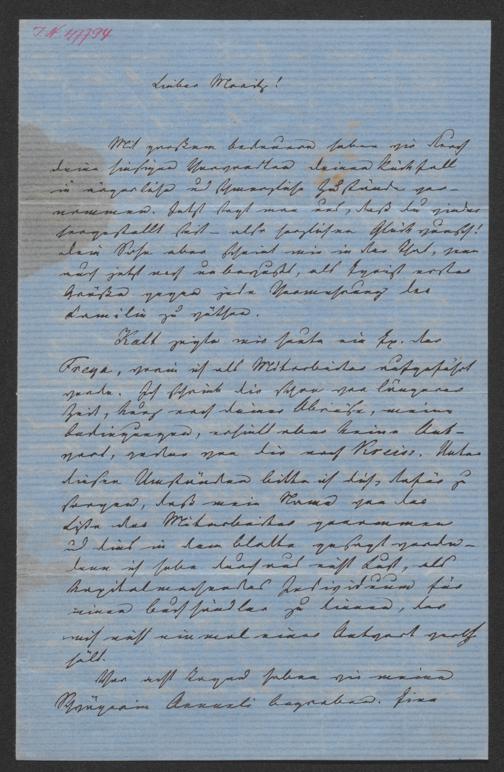 I. N. 47794
Lieber Moritz!
Mit großem bedauern haben wir durch
deine hiesigen Verwandten deinen Rückfall
in ärgerliche und schmerzliche Zustände ver-
nommen. Jetzt sagt man uns, daß du wieder
hergestellt seist – also herzlichen Glückwunsch!
dein Sohn aber scheint mir in der That, wenn
auch jetzt noch unbewußt, als
gegen jede Vermehrung der
Familie zu
Kalt zeigte mir heute ein Ex. der
Freya, worin ich als Mitarbeiter aufgeführt
werde. Ich schrieb dir schon vor längerer
Zeit, kurz nach deiner Abreise, meine
bedingungen, erhielt aber keine Ant-
wort, weder von dir noch Krais. Unter
diesen Umständen bitte ich dich, dafür zu
sorgen, daß mein Name von der
Liste der Mitarbeiter genommen
und dies in dem blatte gesagt werde –
denn ich habe durchaus nicht Lust, als
Individuum für
einen buchhändler zu dienen, der
mich nicht einmal einer Antwort werth
hält.
Vor acht Tagen haben wir meine
Schwägerin begraben. Eine